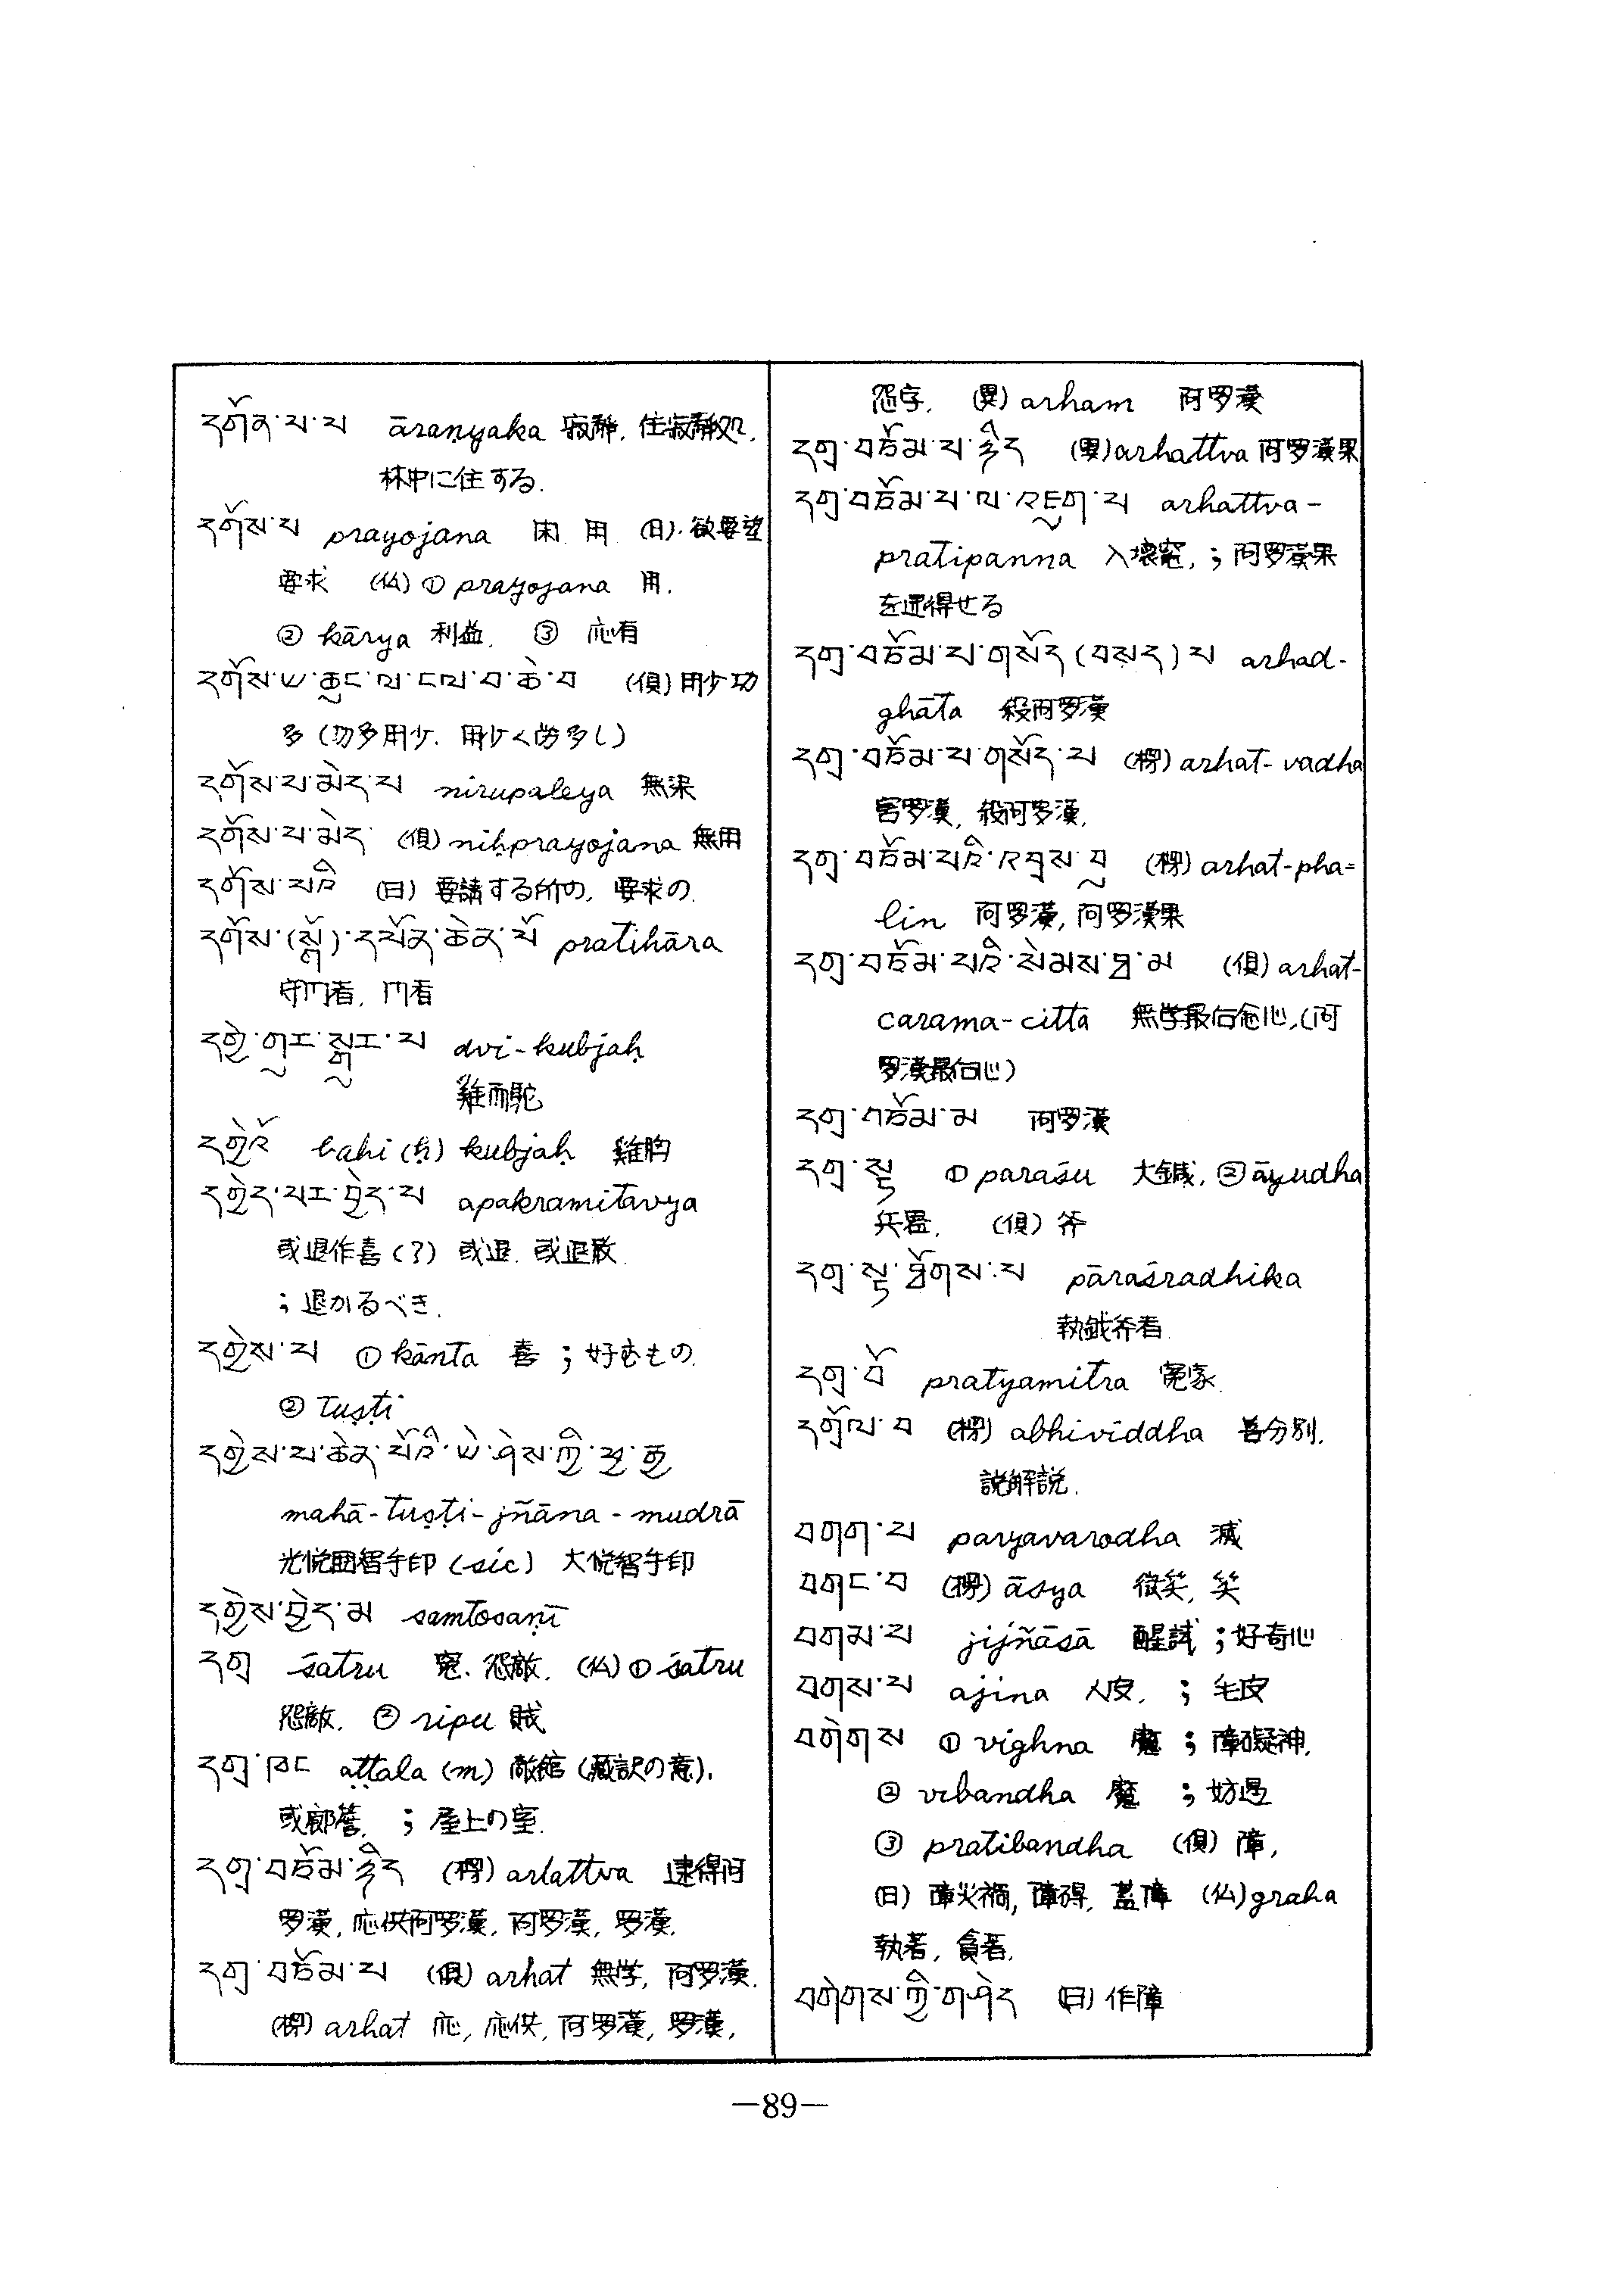 དགོན་པ་པ āranyaka 寂靜. 住寂靜処.
林中に住する.
དགོས་པ prayojana 用 (日).欲要望
要求 (仏) ① prayojana 用.
② kārya 利益. ③ 応有
དགོས་ཡ་ཆུང་ལ་ངལ་བ་ཆེ་བ (倶) 用少功
多 (功多用少. 用少く労多し)
དགོས་པ་མེད་པ nirupaleya 無染
དགོས་པ་མེད (倶) niḥprayojana 無用
དགོས་པའི (日) 要請する所の. 要求の.
དགོས་(སྒོ)་དཔོན་ཆེན་པོ pratihāra
守門者. 門者
དགྱེ་གུར་སྒུར་པ dvi-kubjaḥ
雞而駝
དགྱེའོ bahi (ḥ) kubjaḥ 雞胸
དགྱེད་པར་བྱེད་པ apakramitavya
或退作喜 (?) 或退. 或退散.
; 退かるべき.
དགྱེས་པ ① kānta 喜 ; 好むもの.
② tuṣṭi
དགྱེས་པ་ཆེན་པོའི་ཡེ་ཤེས་ཀྱི་ཕྱ་རྒྱ
mahā-tuṣṭi-jñāna-mudrā
光悦圓智手印 (sic) 大悦智手印
དགྱེས་བྱེད་མ samtosaṇī
དགྲ śatru 冤. 怨敵. (仏) ① śatru
怨敵. ② ripu 賊
དགྲ་ཁང aṭṭala (m) 敵館 (蔵訳の意).
或廓 ; 屋上の室.
དགྲ་བཅོམ་ཉིད (楞) arlattva 逮得阿
罗漢, 応供阿罗漢, 阿罗漢, 罗漢.
དགྲ་བཅོམ་པ (倶) arhat 無学, 阿罗漢.
(楞) arhat 応, 応供, 阿罗漢, 罗漢,
怨字. (異) arham 阿罗漢
དགྲ་བཅོམ་པ་ཉིད (異) arhattva 阿罗漢果
དགྲ་བཅོམ་པ་ལ་འཇུག་པ arhattva-
pratipanna 入壞冤, ; 阿罗漢果
を逮得せる
དགྲ་བཅོམ་པ་གསོད (བསད) པ arhad-
ghāta 殺阿罗漢
དགྲ་བཅོམ་པ་གསོད་པ (楞) arhat-vadha
害罗漢, 殺阿罗漢,
དགྲ་བཅོམ་པའི་འབྲས་བུ (楞) arhat-pha=
lin 阿罗漢, 阿罗漢果
དགྲ་བཅོམ་པའི་སེམས་ཐ་མ (倶) arhat-
carama-citta 無学最后念心, (阿
罗漢最后心)
དགྲ་བཅོམ་མ 阿罗漢
དགྲ་སྟ ① paraśu 大鉞, ② āyudha
兵器. (倶) 斧
དགྲ་སྟ་ཐོགས་པ pāraśradhika
執鉞斧者
དགྲ་བོ pratyamitra 冤家.
དགྲོལ་བ (楞) abhividdha 善分別.
説解説.
བགག་པ paryavarodha 滅
བགང་བ (楞) āsya 微笑, 笑
བགམ་པ jijñāsā 醒試 ; 好奇心
བགས་པ ajina 人皮. ; 毛皮
བགེགས ① vighna 魔 ; 障礙神.
② vibandha 魔 ; 妨遏
③ pratibandha (倶) 障,
(日) 障火禍, 障碍, 蓋障 (仏) graha
執著, 貪著.
བགེགས་ཀྱི་གཤེད (日) 作障
—89—